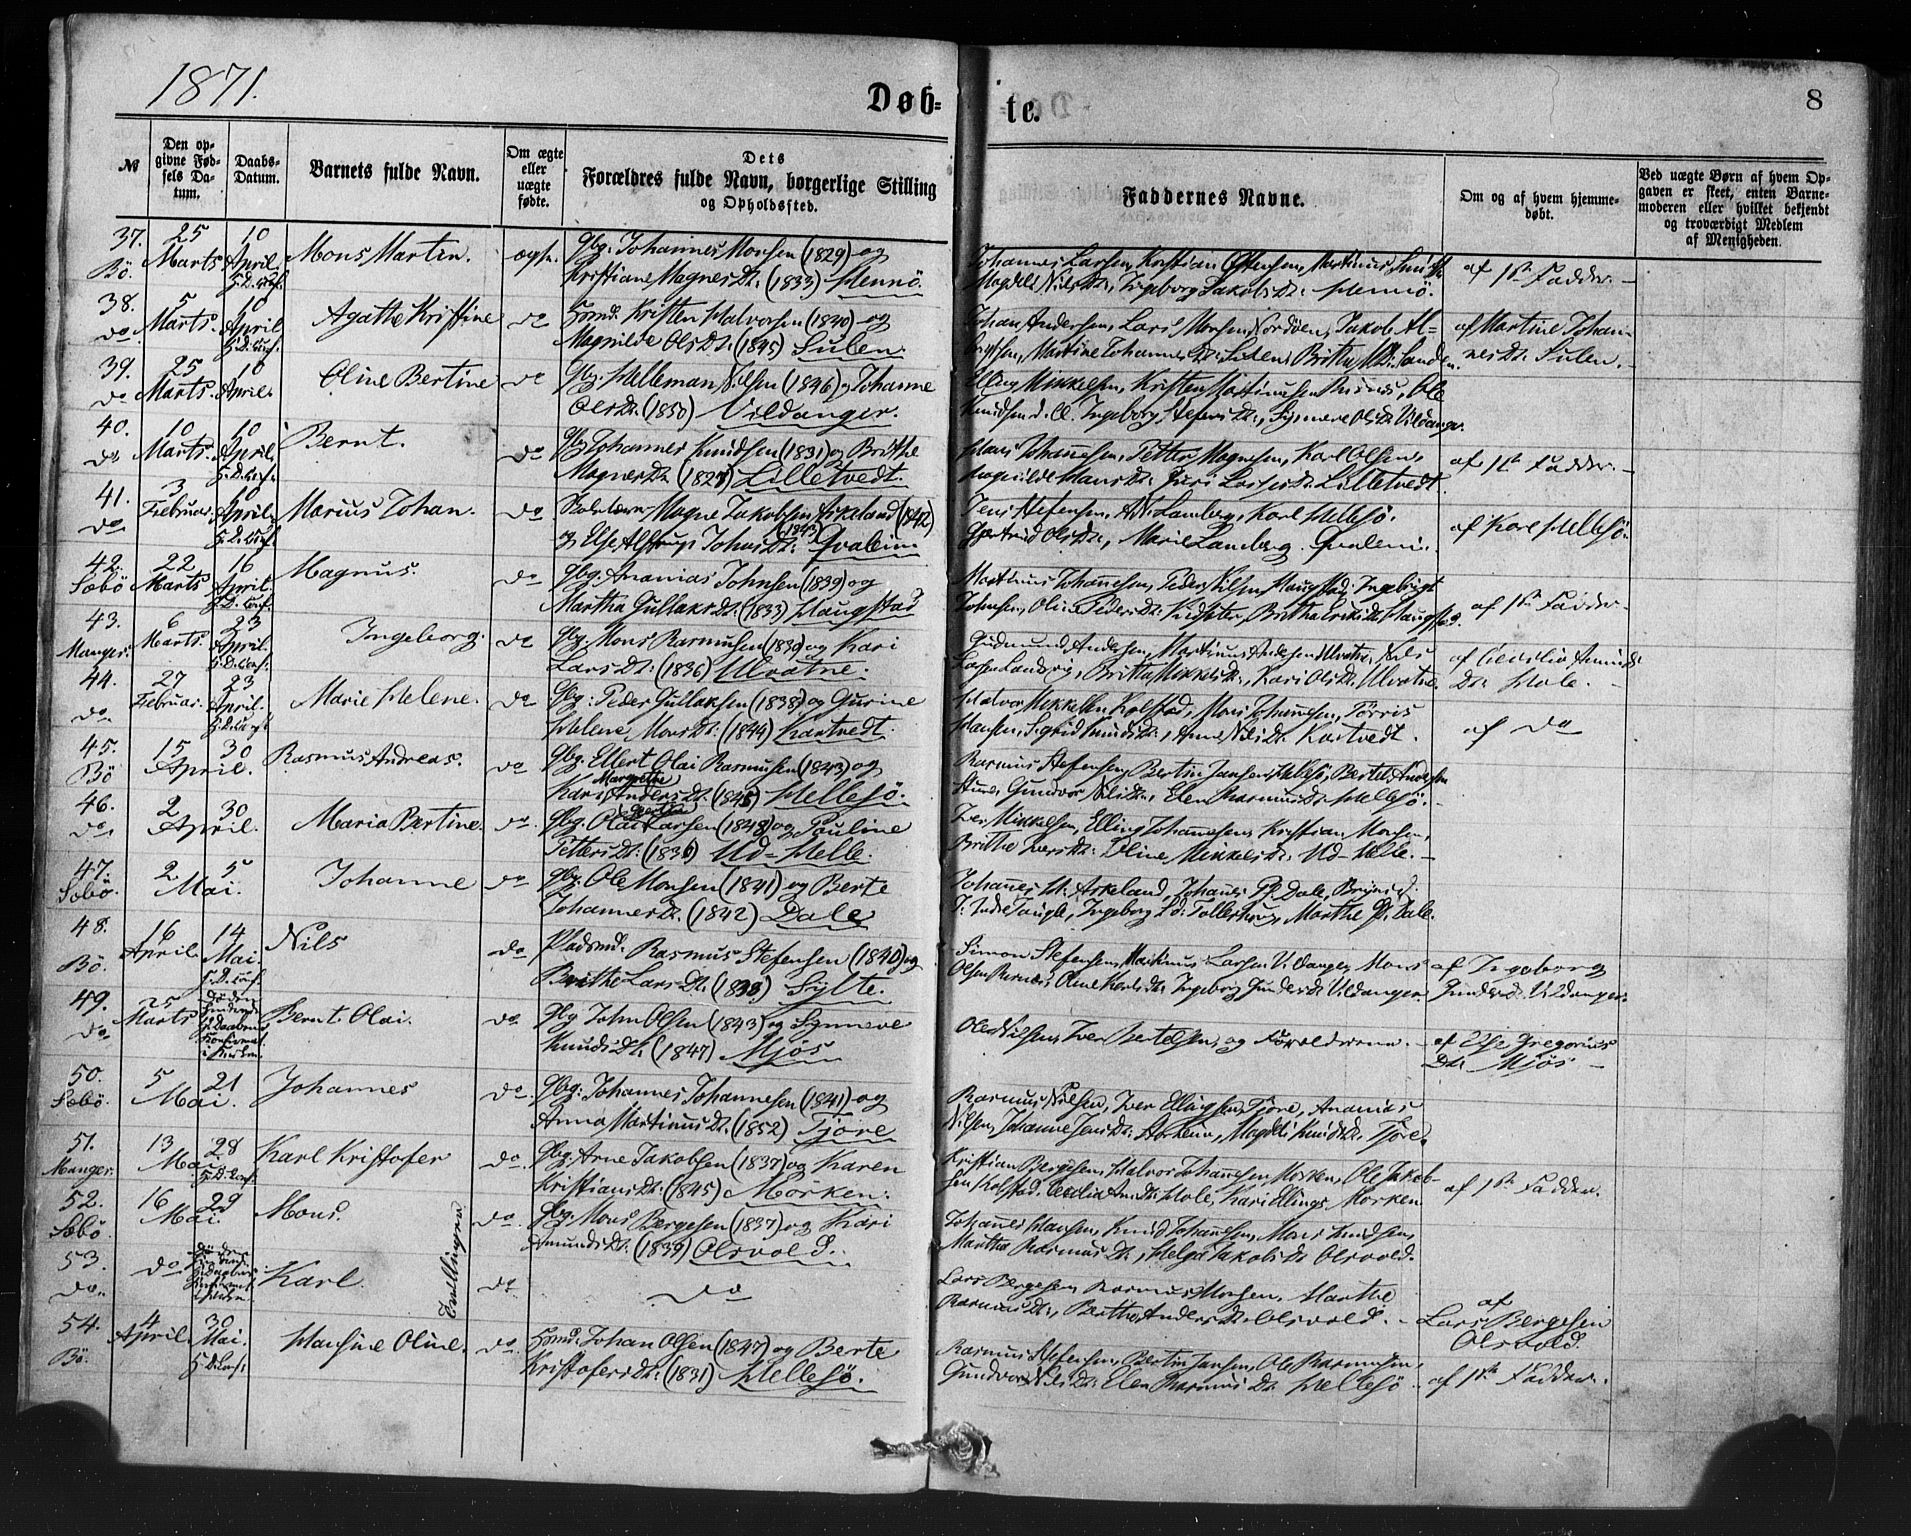 1871.
Døb-
te.
8
№
Den op-
givne Fød-
sels Da-
tum.
Daabs-
Datum.
Barnets fulde Navn.
Om ægte
eller
uægte
fødte.
Dets
Forældres fulde Navn, borgerlige Stilling
og Opholdssted.
Faddernes Navne.
Om og af hvem hjemme-
døbt.
Ved uægte Børn af hvem Op-
gaven er skeet, enten Barne-
moderen eller hvilket bekjendt
og troværdigt Medlem
af Menigheden.
37. 25 10
Bö. Marts. April. Mons Martin. ægte.
Gbg: Johannes Monsen (1829) og
Kristiane Magnes Dt. (1833) Hennö.
Johannes Larsen, Kristian Martinus
Magdeli Nils Dt., Ingeborg Jakobs Dt. Hennö.
af 1ste Fadder.
38. 5 10
do. Marts. April Agathe Kristine do
Kristen Halvorsen (1840) og
Magnilde Ols Dt. (1845) Sulen.
Johan Andersen, Lars Monsen Nordöen, Jakob Al-
Martine Johannes Dt. Sulen, Britha
af Martine Johan-
nes Dt. Sulen.
39. 25 10
do Marts. April. Oline Bertine do
Gbg: Helleman Nilsen (1846) og Johanne
Ols Dt. (1850) Vildanger.
Elling Mikkelsen, Kristen Martinussen Ole
Knudsen Ingeborg Stefens Dt., Synneve Ols Dt. Vildanger.
40. 10 10
do Marts. April. Bernt. do
Gbg Johannes Knudsen (1831) og Brithe
Magnes Dt. (1827) Lilletvedt.
Hans Johannesen, Petter Magnesen, Karl Olsen,
Magnilde Hans Dt. Guri Lasses Dt. Lilletvedt.
af 1ste Fadder.
41. 3 10
do Februar. April Marius Johan. do
Magne Jakobsen Askeland (1842)
og Else Alstrup Johns Dt. Qvalein
Jens Stefensen, A. N. Lamberg, Karl Hellesö.
Gjertrud Ols Dt., Marie Lamberg. Qvalein.
af Karl Hellesö.
42. 22 16
Sæbö Marts April. Magnus. do
Gbg. Ananias Johnsen (1839) og
Martha Gullaks Dt. (1833) Haugstad
Martinus Johannesen, Peder Nilsen Haugstad, Ingebrigt
Johnsen, Oline Peders Dt. Britha Eriks Dt. Haugstad.
af 1ste Fadder.
43. 6 23
Manger. Marts. April. Ingeborg. do
Gbg: Mons Rasmusen (1839) og Kari
Lars Dt. (1836) Ulvatne.
Gudmund Andersen, Martinus Andersen Ulvatne, Nils
Britha Mikkels Dt., Kari Ols Dt. Ulvatne.
af Cecilia Amunds
Dt. Hole.
44. 27 23
do Februar. April. Marie Helene. do
Gbg: Peder Gullaksen (1838) og Gurine
Helene Mons Dt. (1844) Kartvedt.
Halvor Mikkelsen Kolstad, Mons Johannesen, Törris
Hansen, Sigrid Knuds Dt., Anne Nils Dt. Kartvedt.
af do
45. 15 30
Bö April. Rasmus Andreas. do
Gbg. Ellert Olai Rasmusen (1843) og
Kari Margrethe Anders Dt. (1845) Hellesö.
Rasmus Stefensen, Bertin Jansen Hellesö, Bertel Andersen
Gundvor Nils Dt., Elen Rasmus Dt. Hellesö.
46. 2 30
do. April. Maria Bertine. do.
Gbg. Olai Larsen (1848) og Pauline
Petters Dt. (1836) Ud-Helle.
Iver Mikkelsen, Elling Johannesen, Kristian Monsen,
Brithe Ivers Dt. Oline Mikkels Dt. Ud-Helle.
47. 2 5
Sæbö. Mai. Johanne do
Gbg. Ole Monsen (1841) og Berte
Johannes Dt. (1842) Dale
Johannes H. Askeland, Johannes P. Dale, Brynild
J. Indre Taugle, Ingeborg Marthe P. Dale.
48. 16 14
Bö. April. Mai. Nils do
Pladsmd. Rasmus Stefensen (1840) og
Brithe Lars Dt. (1838) Sylte.
Simon Stefensen, Martinus Larsen Vildanger, Mons
Olsen Rarnæs, Oline Karls Dt., Ingeborg Gunders Dt. Vildanger.
af Ingeborg
Gunders Dt. Vildanger.
49. 25
do. Marts Bernt Olai. do.
Gbg John Olsen (1843) og Synneve
Knuds Dt. (1847) Mjös
Ole Nilsen, Iver Bertelsen, og Forældrene.
af Else Gregorius
Dt. Mjös
50. 5 21
Sæbö. Mai. Johannes do.
Gbg: Johannes Johannesen (1841) og
Anna Martinus Dt. (1852) Tjore
Rasmus Nilsen, Iver Ellingsen Tjore, Ananias
Nilsen, Johanne Jens Dt. Askeim, Magdeli Knuds Dt. Tjore.
51. 13 28
Manger. Mai Karl Kristofer do.
Gbg. Arne Jakobsen (1837) og Karen
Kristians Dt. (1845) Mörken.
Kristian Bergesen, Halvor Johannesen Mörken, Ole Jakob-
sen Kolstad, Cecilia Am. Dt. Hole, Kari Ellings Mörken
af 1ste Fadder.
52. 16 29
Sæbö. Mai. Mons. do.
Tvillinger
Gbg. Mons Bergesen (1837) og Kari
Amunds Dt. (1839) Olsvold.
Johannes Hansen, Knud Johannesen, Mons Knudsen,
Martha Rasmus Dt., Helga Jakobs Dt. Olsvold.
53. do
do. Karl. do. do
Lars Bergesen, Rasmus Monsen, Marthe
Rasmus Dt., Berthe Anders Dt. Olsvold.
af
Lars Bergesen
Olsvold.
54. 4 30
Bö. April. Mai. Hansine Oline. do.
Johan Olsen (1847) og Berte
Kristofers Dt. (1831) Hellesö.
Rasmus Stefensen, Bertin Jansen, Ole Rasmusen,
Gundvor Nils Dt. Elen Rasmus Dt. Hellesö.
af 1ste Fadder.